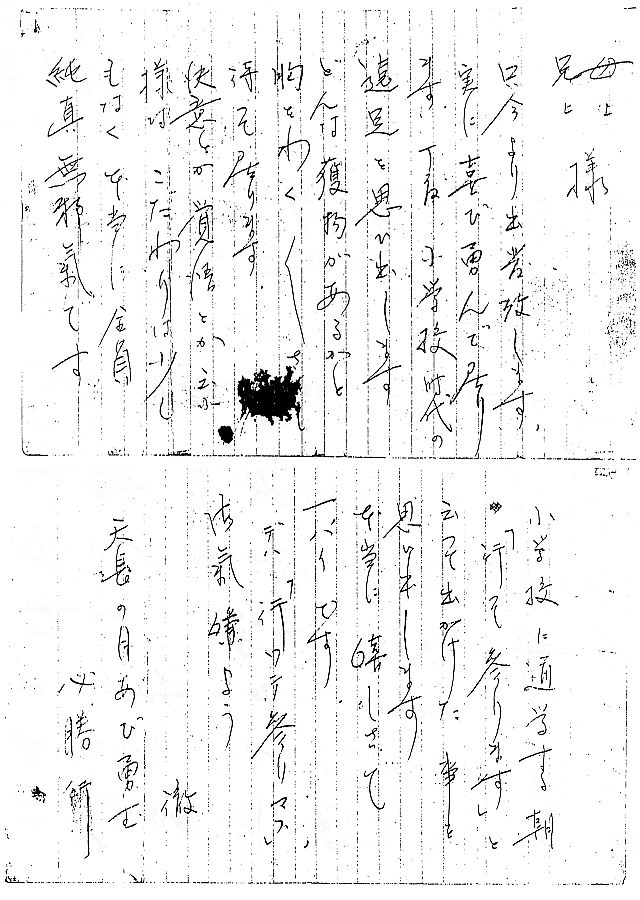 母上
兄上 様
只今より出発致します、
実に喜び勇んで居り
ます 丁度 小学校時代の
遠足を思ひ出します
どんな獲物があるかと
胸をわく〱さ
得て居ります
決意とか覚悟とか云ふ
様な こだわりは少し
もなく 本当に全員
純真無邪氣です
小学校に通学する朝
「行って参ります」と
云って出かけた事を
思い出します
本当に嬉しさで
一パイです
デハ「行ッテ参リマス」
御氣嫌よう
徹
天長の日あび勇む
必勝行